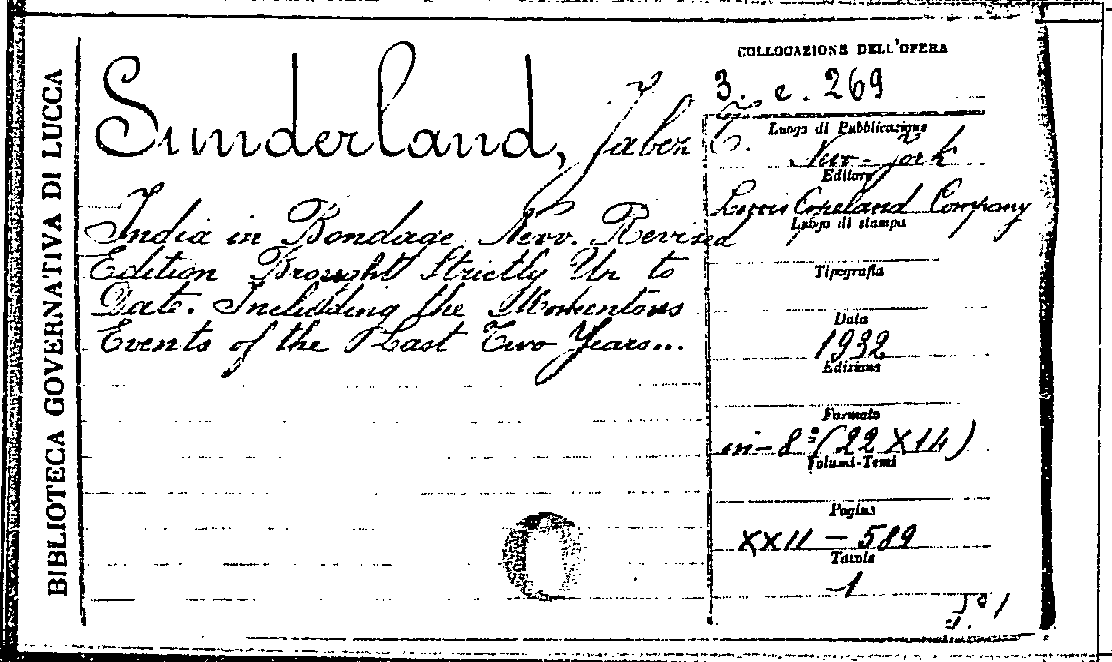 BIBLIOTECA GOVERNATIVA DI LUCCA
Sunderland, Jabez T.
India in Bondage New. Revised
Edition Brought Strictly Up to
Date. Including the Momentous
Events of the Last Two Years...
COLLOCAZIONE DELL'OPERA
3. e. 269
Luogo di Pubblicazione
New-York
Editore
Copeland Company
Luogo di stampa
Tipografia
Data
1932
Edizione
Formato
in-8° (22 X 14)
Volumi-Tomi
Pagine
XXII - 589
Tavole
1